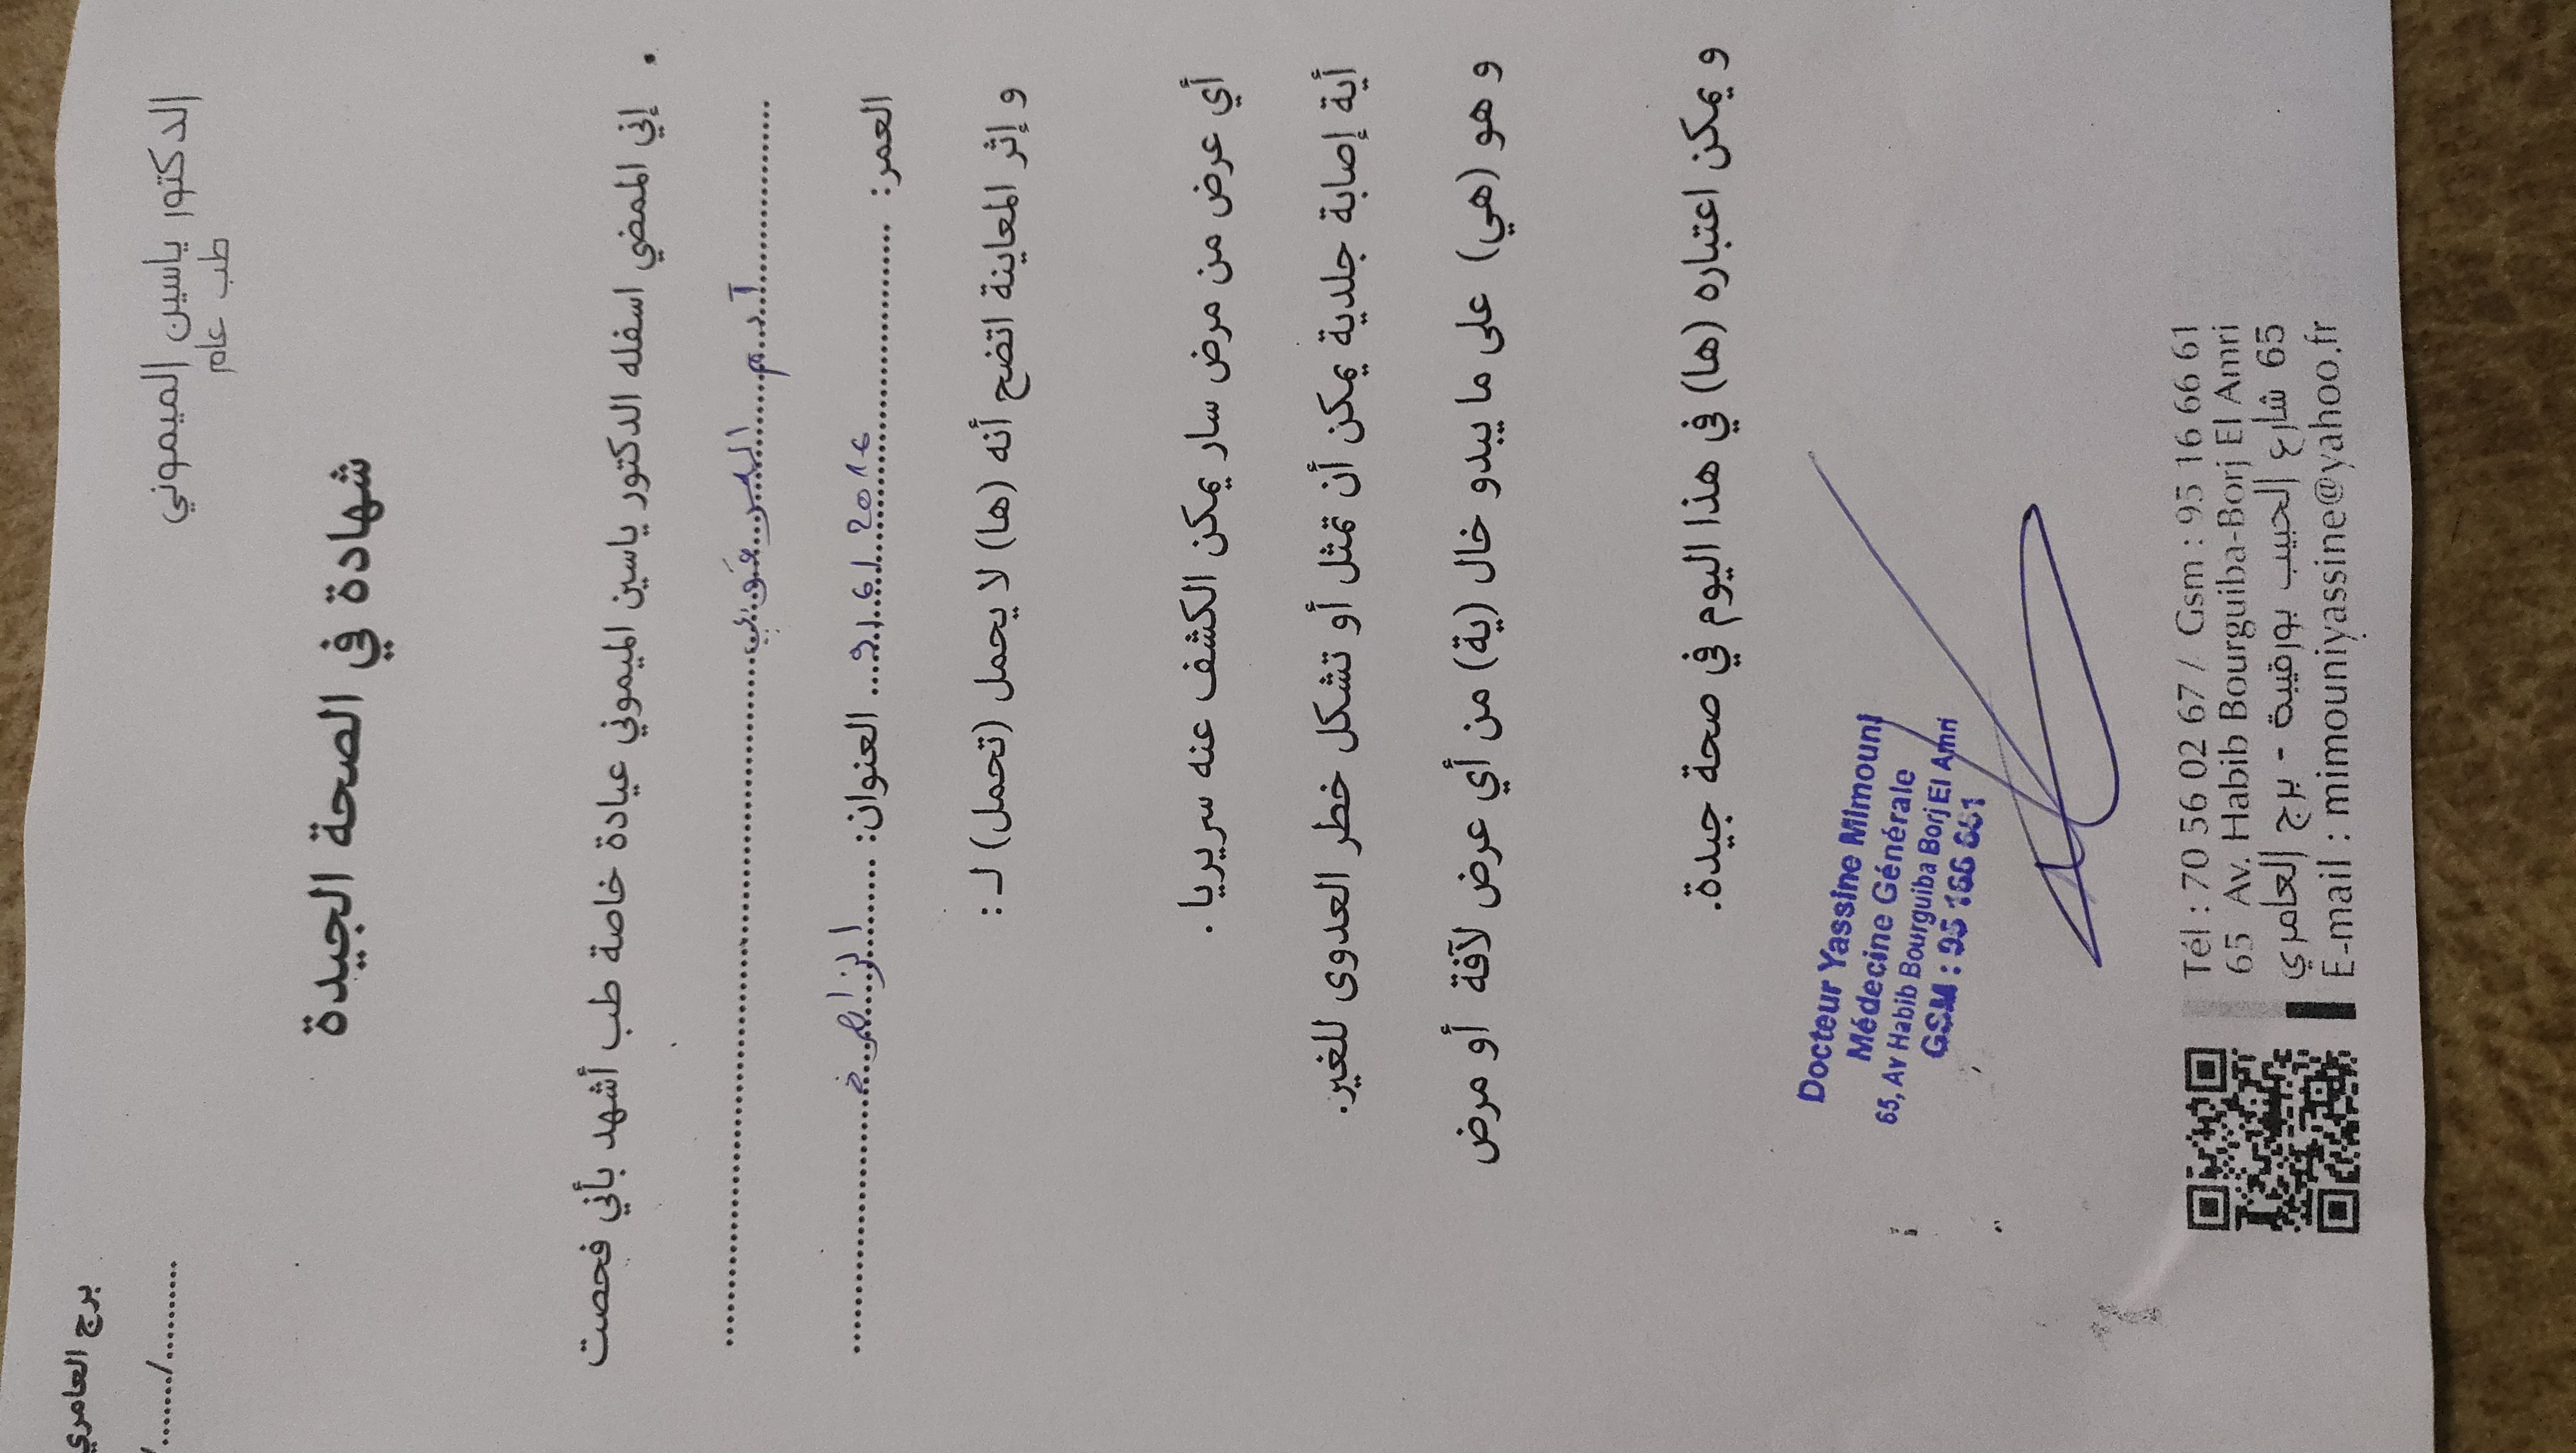 الدكتور ياسين الميموني
طب عام
برج العامري
شهادة في الصحة الجيدة
إني الممضي اسفله الدكتور ياسين الميموني عيادة خاصة طب أشهد بأني فحصت
آدم
العمر: العنوان:
و إثر المعاينة اتضح أنه (ها) لا يحمل (تحمل) لـ :
أي عرض من مرض سار يمكن الكشف عنه سريريا .
أية إصابة جلدية يمكن أن تمثل أو تشكل خطر العدوى للغير.
و هو (هي) على ما يبدو خال (ية) من أي عرض لآفة أو مرض
و يمكن اعتباره (ها) في هذا اليوم في صحة جيدة.
Docteur Yassine Mimouni
Médecine Générale
65, Av Habib Bourguiba Borj El Amri
GSM : 95 166 661
Tél : 70 56 02 67 / Gsm : 95 16 66 61
65 Av. Habib Bourguiba-Borj El Amri
65 شارع الحبيب بورقيبة - برج العامري
E-mail : mimouniyassine@yahoo.fr